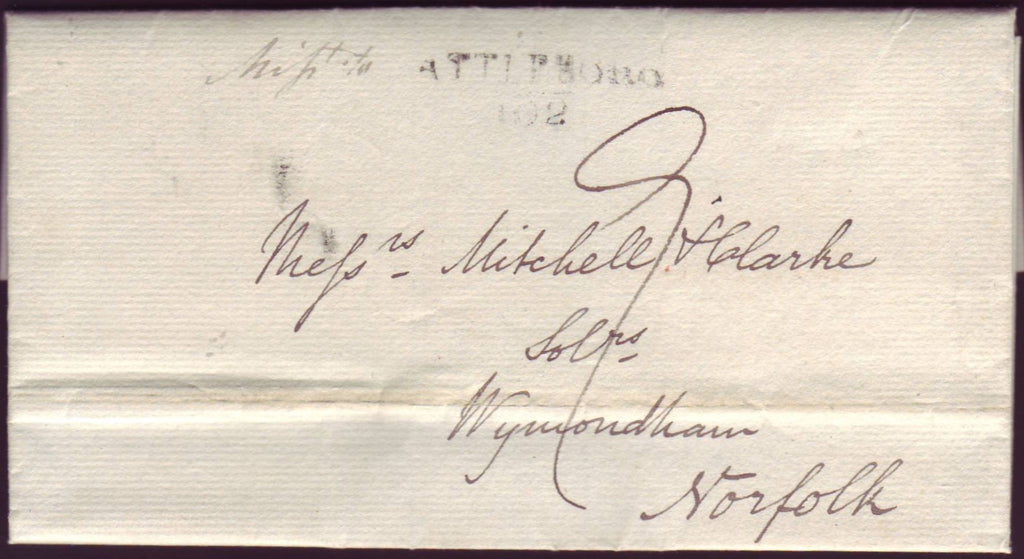 Misst to
ATTLEBORO
102
9
Messrs Mitchell & Clarke
Solrs
Wymondham
Norfolk